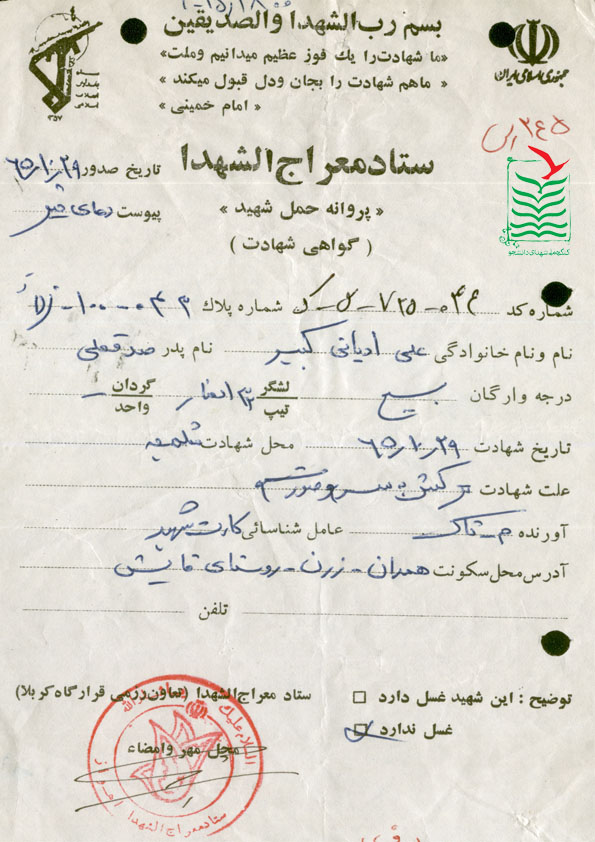 بسم رب الشهدا والصدیقین
«ما شهادت را یك فوز عظیم میدانیم وملت»
«ماهم شهادت را بجان ودل قبول میکند»
« امام خمینی »
جمهوری اسلامی ایران
سپاه
پاسداران
انقلاب
اسلامی
۱۳۵۷
۳۴۵
ستاد معراج الشهدا
تاریخ صدور ۶۵/۱۰/۲۹
« پروانه حمل شهید »
پیوست
( گواهی شهادت )
کنگره ملی شهدای دانشجو
شماره کد ۰۴۴ - ۷۲۵ - ل - ک شماره پلاك
نام ونام خانوادگی علی ادیانی کبیر نام پدر صدقعلی
درجه وارگان بسیج لشگر تیپ ۳۲ انصار گردان واحد -
تاریخ شهادت ۶۵/۱۰/۲۹ محل شهادت شلمچه
علت شهادت ترکش به سر و صورت
آورنده م - تاک عامل شناسائی کارت شهید
آدرس محل سکونت همدان - رزن - روستای قایش
تلفن
توضیح : این شهید غسل دارد □
غسل ندارد □
ستاد معراج الشهدا (تعاون رزمی قرارگاه کربلا)
محل مهر وامضاء
السلام علیک
ستاد معراج الشهدا اهواز